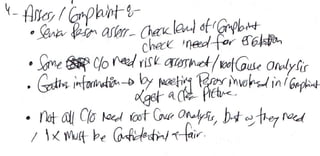 4- Assess / Complaint :-
• Senior Person assess - check level of Complaint
check need for escalation
• Some C/o need risk assessment / root Cause analysis
• Gather information → by meeting Person involved in / Complaint
& get a clear Picture.
• Not all C/o need Root Cause Analysis, but if they need
/ Ix must be Confidential & fair.